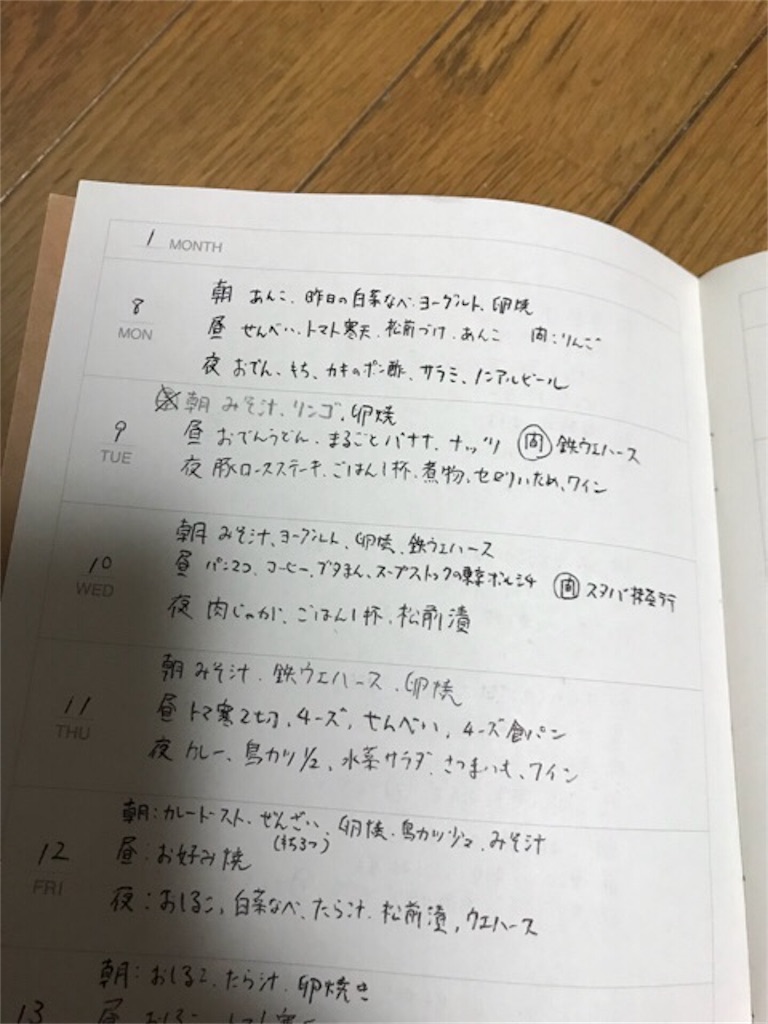 1 MONTH
8 MON
朝 あんこ、昨日の白菜なべ、ヨーグルト、卵焼
昼 せんべい、トマト寒天、松前づけ、あんこ 間:りんご
夜 おでん、もち、カキのポン酢、サラミ、ノンアルビール
9 TUE
朝 みそ汁、リンゴ、卵焼
昼 おでんうどん、まるごとバナナ、ナッツ 間 鉄ウエハース
夜 豚ロースステーキ、ごはん1杯、煮物、セロリいため、ワイン
10 WED
朝 みそ汁、ヨーグルト、卵焼、鉄ウエハース
昼 パン2つ、コーヒー、ブタまん、スープストックの東京ボルシチ 間 スタバ抹茶ラテ
夜 肉じゃが、ごはん1杯、松前漬
11 THU
朝 みそ汁、鉄ウエハース、卵焼
昼 トマ寒2切、チーズ、せんべい、チーズ食パン
夜 カレー、鳥カツ1/2、水菜サラダ、さつまいも、ワイン
12 FRI
朝:カレートースト、ぜんざい、卵焼、鳥カツ1/2、みそ汁
(もち3つ)
昼:お好み焼
夜:おしるこ、白菜なべ、たら汁、松前漬、ウエハース
朝:おしるこ、たら汁、卵焼き
13
昼 おしるこ、トマト寒天